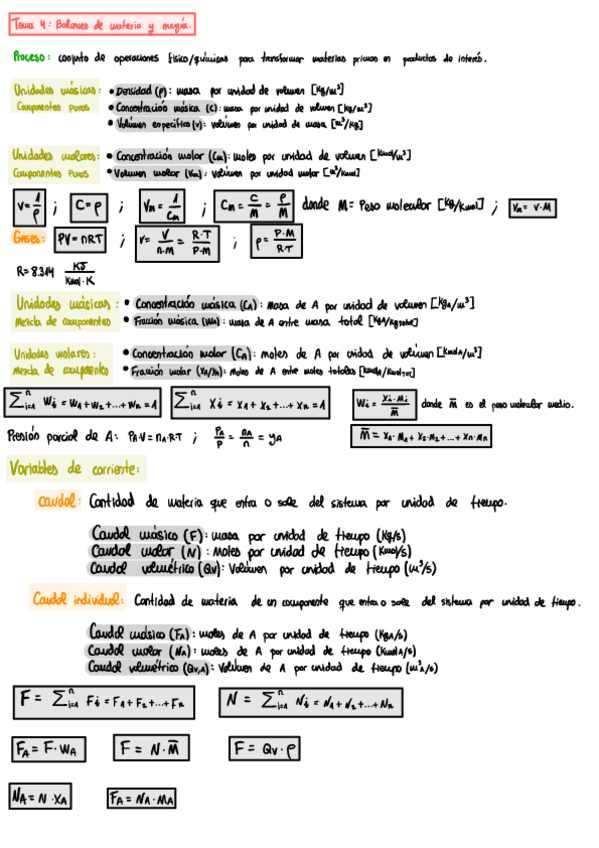 Tema 4: Balances de materia y energía.
Proceso: conjunto de operaciones físico/químicas para transformar materias primas en productos de interés.
Unidades másicas: • Densidad (ρ): masa por unidad de volumen [kg/m³]
Componentes puros • Concentración másica (C): masa por unidad de volumen [kg/m³]
• Volúmen específico (v): volúmen por unidad de masa [m³/kg]
Unidades molares: • Concentración molar (Cm): moles por unidad de volumen [kmol/m³]
Componentes puros • Volumen molar (Vm): volúmen por unidad molar [m³/kmol]
v = 1/ρ ; C = ρ ; Vm = 1/Cm ; Cm = C/M = ρ/M donde M = Peso molecular [kg/kmol] ; Vm = v·M
Gases: PV = nRT ; v = V/n·M = R·T/P·M ; ρ = P·M/R·T
R = 8.314 KJ/kmol·K
Unidades másicas: • Concentración másica (CA): Masa de A por unidad de volumen [kgA/m³]
Mezcla de componentes • Fracción másica (WA): masa de A entre masa total [kgA/kgtotal]
Unidades molares: • Concentración molar (CA): moles de A por unidad de volúmen [kmolA/m³]
Mezcla de componentes • Fracción molar (XA/YA): Moles de A entre moles totales [kmolA/kmoltot]
∑ⁿᵢ₌₁ Wi = W1 + W2 + ... + Wn = 1 ∑ⁿᵢ₌₁ Xi = X1 + X2 + ... + Xn = 1 Wi = Xi·Mi/M̄ donde M̄ es el peso molecular medio.
Presión parcial de A: PA·V = nA·R·T ; PA/P = nA/n = yA M̄ = XA·MA + X2·M2 + ... + Xn·Mn
Variables de corriente:
caudal: Cantidad de materia que entra o sale del sistema por unidad de tiempo.
Caudal másico (F): masa por unidad de tiempo (kg/s)
Caudal molar (N): Moles por unidad de tiempo (kmol/s)
Caudal volumétrico (Qv): Volúmen por unidad de tiempo (m³/s)
Caudal individual: Cantidad de materia de un componente que entra o sale del sistema por unidad de tiempo.
Caudal másico (FA): moles de A por unidad de tiempo (kgA/s)
Caudal molar (NA): moles de A por unidad de tiempo (kmolA/s)
Caudal volumétrico (Qv,A): Volúmen de A por unidad de tiempo (m³A/s)
F = ∑ⁿᵢ₌₁ Fi = F1 + F2 + ... + Fn N = ∑ⁿᵢ₌₁ Ni = N1 + N2 + ... + Nn
FA = F·WA F = N·M̄ F = Qv·ρ
NA = N·XA FA = NA·MA